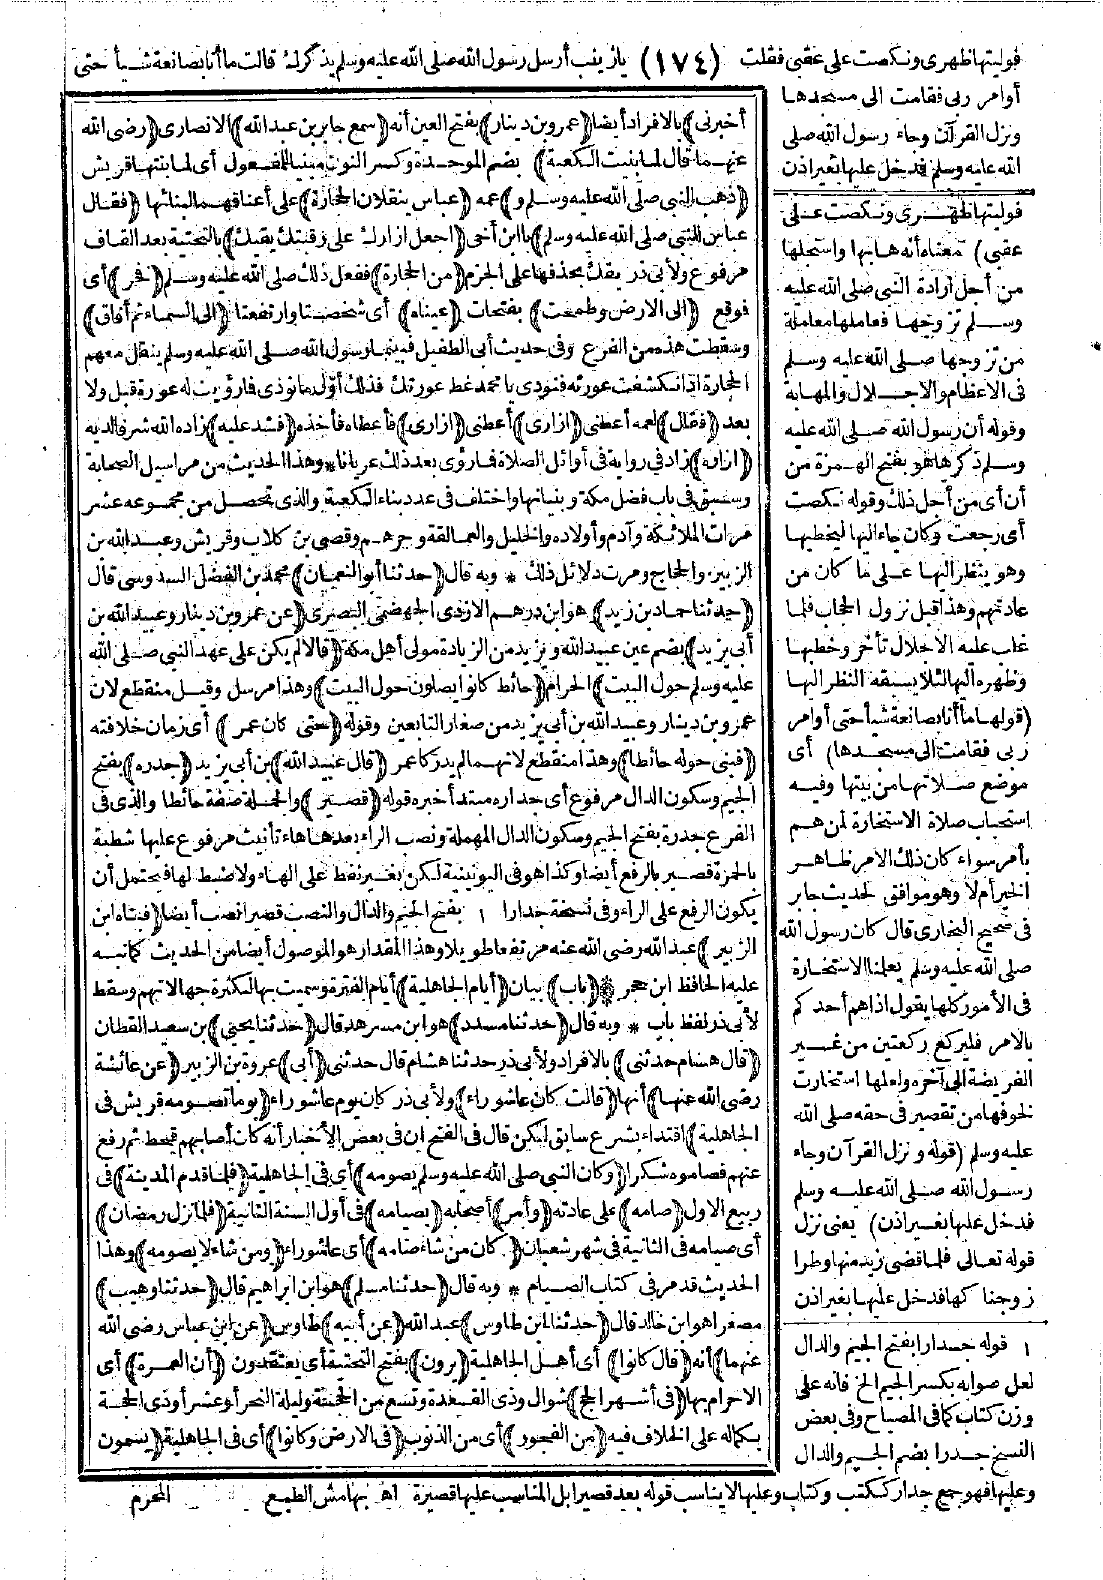 فوليتها ظهرى ونكصت على عقبى فقلت (١٧٤) يازينب أرسل رسول الله صلى الله عليه وسلم يذكرك قالت ما أنا بصانعة شيأ حتى
أوامر ربى فقامت الى مسجدها
ونزل القرآن وجاء رسول الله صلى
الله عليه وسلم فدخل عليها بغير اذن
فوليتها ظهرى ونكصت على
عقبى) معناه أنه هابها واستجلها
من أجل ارادة النبى صلى الله عليه
وسلم تزوجها فعاملها معاملة
من تزوجها صلى الله عليه وسلم
فى الاعظام والاجلال والمهابة
وقوله أن رسول الله صلى الله عليه
وسلم ذكرها هو بفتح الهمزة من
أن أى من أجل ذلك وقوله نكصت
أى رجعت وكان جاء اليها ليخطبها
وهو ينظر اليها على ما كان من
عادتهم وهذا قبل نزول الحجاب فلما
غلب عليه الاجلال تأخر وخطبها
وظهره اليها لئلا يسبقه النظر اليها
(قولها ما أنا بصانعة شيأ حتى أوامر
ربى فقامت الى مسجدها) أى
موضع صلاتها من بيتها وفيه
استحباب صلاة الاستخارة لمن هم
بأمر سواء كان ذلك الامر ظاهر
الخير أم لا وهو موافق لحديث جابر
فى صحيح البخارى قال كان رسول الله
صلى الله عليه وسلم يعلمنا الاستخارة
فى الأمور كلها يقول اذا هم أحدكم
بالامر فليركع ركعتين من غير
الفريضة الى آخره ولعلها استخارت
لخوفها من تقصير فى حقه صلى الله
عليه وسلم (قوله ونزل القرآن وجاء
رسول الله صلى الله عليه وسلم
فدخل عليها بغير اذن) يعنى نزل
قوله تعالى فلما قضى زيد منها وطرا
زوجناكها فدخل عليها بغير اذن
١ قوله جدارا بفتح الجيم والدال
لعل صوابه بكسر الجيم الخ فانه على
وزن كتاب كما فى المصباح وفى بعض
النسخ جدرا بضم الجيم والدال
أخبرنى) بالافراد أيضا (عمرو بن دينار) بفتح العين أنه (سمع جابر بن عبد الله) الانصارى (رضى الله
عنهما قال لما بنيت الكعبة) بضم الموحدة وكسر النون مبنيا للمفعول أى لما بنتها قريش
(ذهب النبى صلى الله عليه وسلم و) عمه (عباس ينقلان الحجارة) على أعناقهما لبنائها (فقال
عباس للنبى صلى الله عليه وسلم) يا ابن أخى (اجعل ازارك على رقبتك يقيك) بالتحتية بعد القاف
مرفوع ولأبى ذر يقك بحذفها على الجزم (من الحجارة) ففعل ذلك صلى الله عليه وسلم (فخر) أى
فوقع (الى الارض وطمحت) بفتحات (عيناه) أى شخصتا وارتفعتا (الى السماء ثم أفاق)
وسقطت هذه من الفرع وفى حديث أبى الطفيل فبينما رسول الله صلى الله عليه وسلم ينقل معهم
الحجارة اذ انكشفت عورته فنودى يا محمد غط عورتك فذلك أول ما نودى فما رؤيت له عورة قبل ولا
بعد (فقال) لعمه أعطنى (ازارى) أعطنى (ازارى) فأعطاه فأخذه (فشد عليه) زاده الله شرفا لديه
(ازاره) زاد فى رواية فى أوائل الصلاة فما رؤى بعد ذلك عريانا * وهذا الحديث من مراسيل الصحابة
وسبق فى باب فضل مكة وبنيانها واختلف فى عدد بناء الكعبة والذى تحصل من مجموعه عشر
مرات الملائكة وآدم وأولاده والخليل والعمالقة وجرهم وقصى بن كلاب وقريش وعبد الله بن
الزبير والحجاج ومرت دلائل ذلك * وبه قال (حدثنا أبو النعمان) محمد بن الفضل السدوسى قال
(حدثنا حماد بن زيد) هو ابن درهم الازدى الجهضمى البصرى (عن عمرو بن دينار وعبيد الله بن
أبى يزيد) بضم عين عبيد الله ويزيد من الزيادة مولى أهل مكة (قالا لم يكن على عهد النبى صلى الله
عليه وسلم حول البيت) الحرام (حائط كانوا يصلون حول البيت) وهذا مرسل وقيل منقطع لان
عمرو بن دينار وعبيد الله بن أبى يزيد من صغار التابعين وقوله (حتى كان عمر) أى زمان خلافته
(فبنى حوله حائطا) وهذا منقطع لانهما لم يدركا عمر (قال عبيد الله) بن أبى يزيد (جدره) بفتح
الجيم وسكون الدال مرفوع أى جداره مبتدأ خبره قوله (قصير) والجملة صفة حائطا والذى فى
الفرع جدرة بفتح الجيم وسكون الدال المهملة ونصب الراء بعدها هاء تأنيث مرفوع عليها شطبة
بالحمرة قصير بالرفع أيضا وكذا هو فى اليونينية لكن بغير نقط على الهاء ولا ضبط لها فيحتمل أن
يكون الرفع على الراء وفى نسخة جدارا ١ بفتح الجيم والدال والنصب قصيرا نصب أيضا (فبناه ابن
الزبير) عبد الله رضى الله عنه مرتفعا طويلا وهذا المقدار هو الموصول أيضا من الحديث كما نبه
عليه الحافظ ابن حجر * (باب) بيان (أيام الجاهلية) أيام الفترة وسميت بها لكثرة جهالاتهم وسقط
لأبى ذر لفظ باب * وبه قال (حدثنا مسدد) هو ابن مسرهد قال (حدثنا يحيى) بن سعيد القطان
(قال هشام حدثنى) بالافراد ولأبى ذر حدثنا هشام قال حدثنى (أبى) عروة بن الزبير (عن عائشة
رضى الله عنها) أنها (قالت كان عاشوراء) ولأبى ذر كان يوم عاشوراء (يوما تصومه قريش فى
الجاهلية) اقتداء بشرع سابق لكن قال فى الفتح ان فى بعض الأخبار أنه كان أصابهم قحط ثم رفع
عنهم فصاموه شكرا (وكان النبى صلى الله عليه وسلم يصومه) أى فى الجاهلية (فلما قدم المدينة) فى
ربيع الاول (صامه) على عادته (وأمر) أصحابه (بصيامه) فى أول السنة الثانية (فلما نزل رمضان)
أى صيامه فى الثانية فى شهر شعبان (كان من شاء صامه) أى عاشوراء (ومن شاء لا يصومه) وهذا
الحديث قد مر فى كتاب الصيام * وبه قال (حدثنا مسلم) هو ابن ابراهيم قال (حدثنا وهيب)
مصغرا هو ابن خالد قال (حدثنا ابن طاوس) عبد الله (عن أبيه) طاوس (عن ابن عباس رضى الله
عنهما) أنه (قال كانوا) أى أهل الجاهلية (يرون) بفتح التحتية أى يعتقدون (أن العمرة) أى
الاحرام بها (فى أشهر الحج) شوال وذى القعدة وتسع من الحجة وليلة النحر أو عشر أو ذى الحجة
بكماله على الخلاف فيه (من الفجور) أى من الذنوب (فى الارض وكانوا) أى فى الجاهلية (يسمون
وعليها فهو جمع جدار ككتب وكتاب وعليها لا يناسب قوله بعد قصيرا بل المناسب عليها قصيرة اه بهامش الطبع المحرم